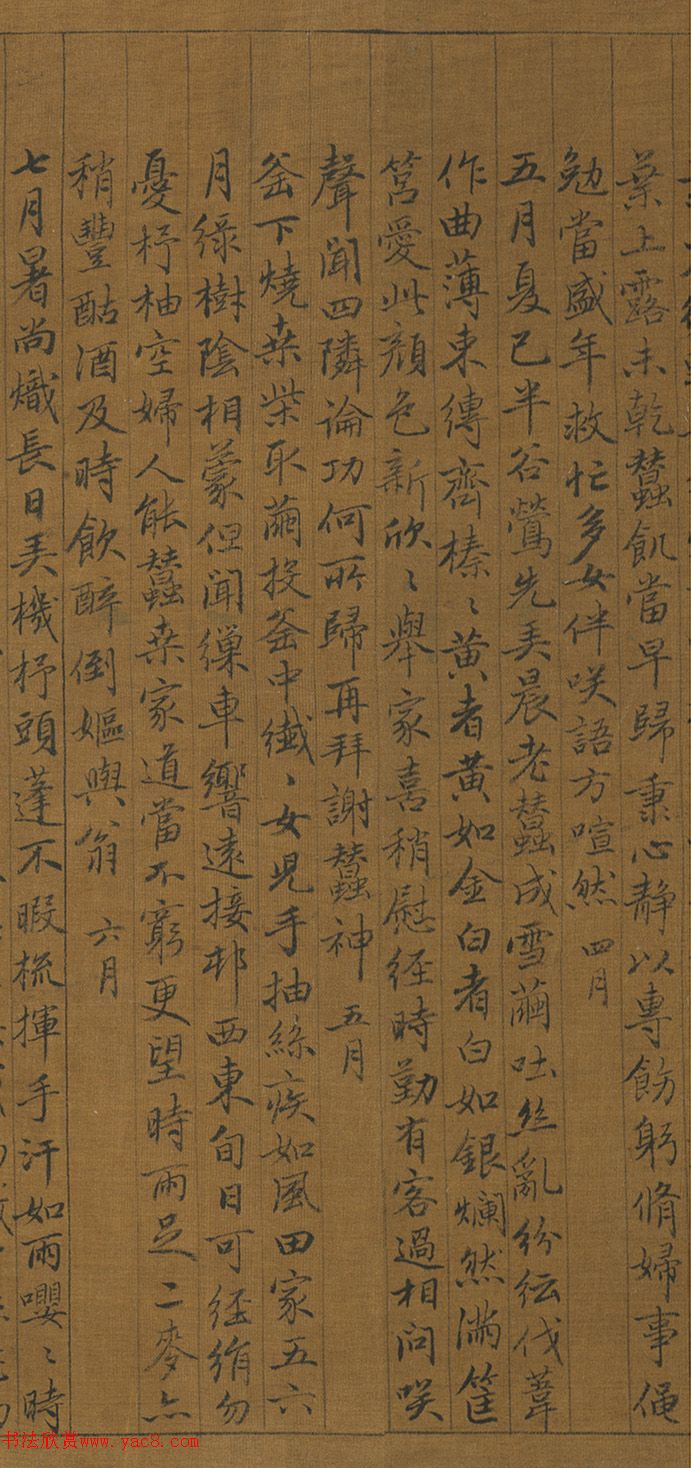 葉上露未乾蠶飢當早歸秉心靜以專飭躬脩婦事僶
勉當盛年救忙多女伴咲語方喧然 四月
五月夏已半谷鶯先弄晨老蠶成雪繭吐丝亂紛紜伐葦
作曲薄束縛齊榛〻黄者黄如金白者白如銀爛然满筐
筥愛此颜色新欣〻舉家喜稍慰经時勤有客過相问咲
聲闻四隣論功何所歸再拜謝蠶神 五月
釜下燒桒柴取繭投釜中纖〻女兒手抽絲疾如風田家五六
月緑樹陰相蒙但闻繅車響遠接邨西東旬日可经绢勿
憂杼柚空婦人能蠶桒家道當不窮更望時雨足二麥亦
稍豐酤酒及時飲醉倒嫗與翁 六月
七月暑尚熾長日弄機杼頭蓬不暇梳揮手汗如雨嚶〻時
书法欣赏www.yac8.com